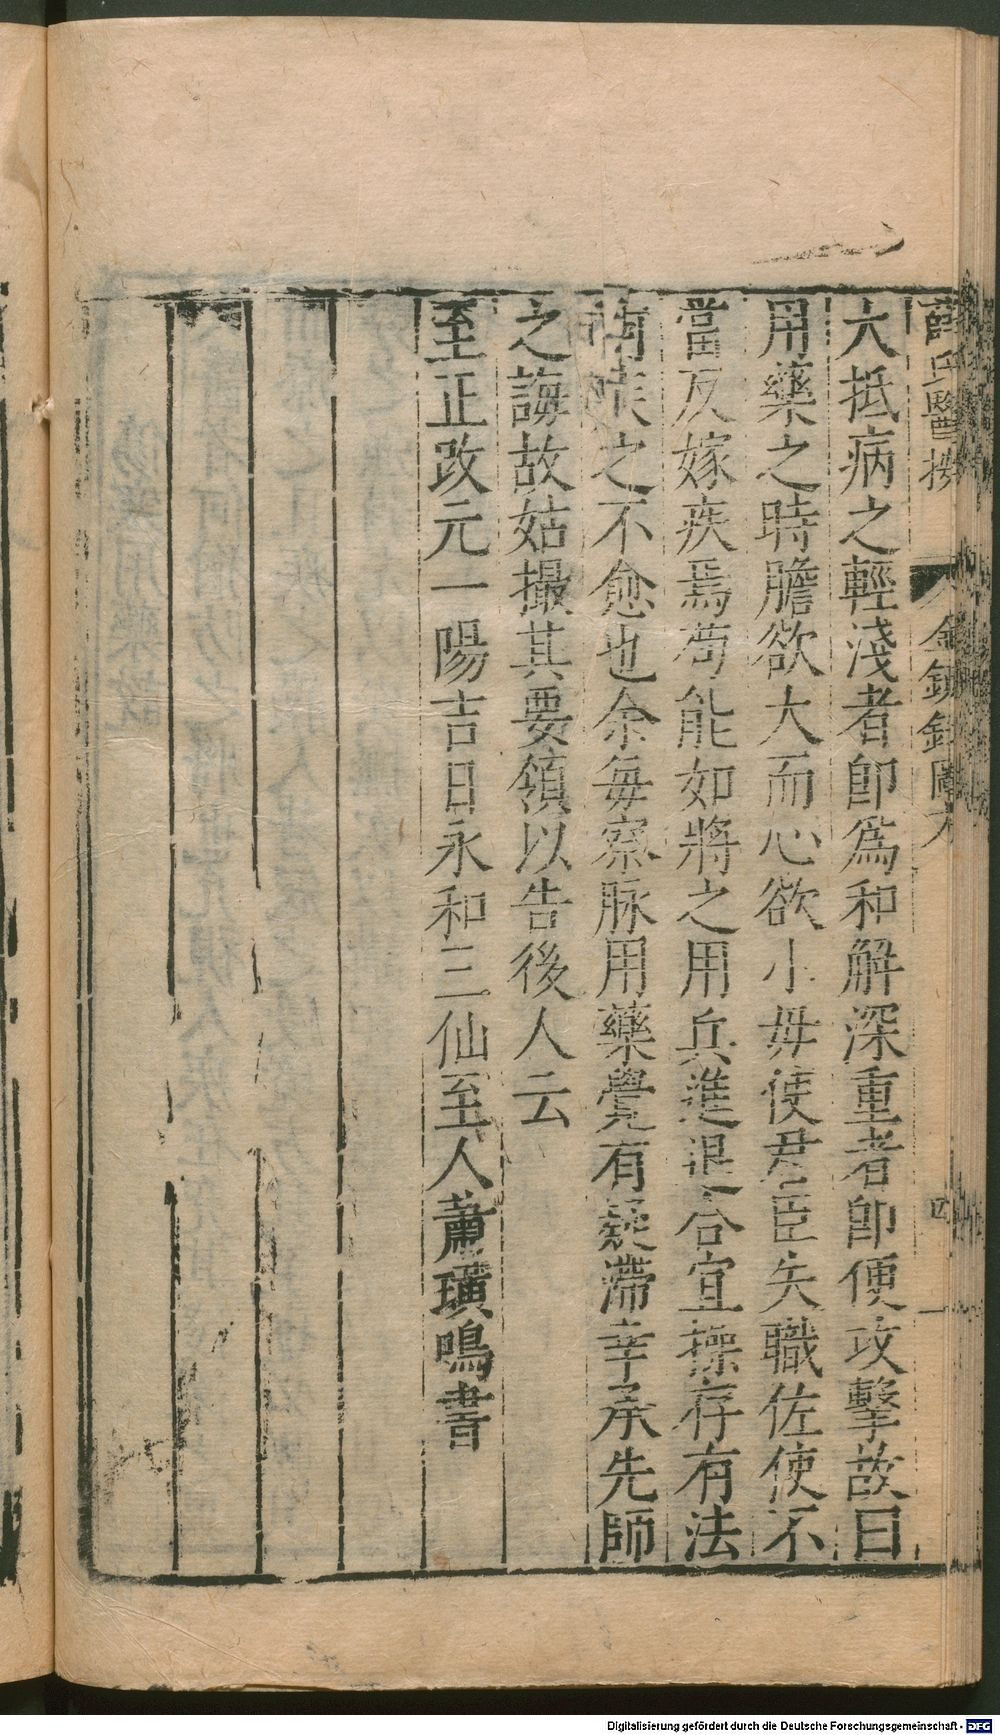 薛氏醫按 金鏡錄 四
大抵病之輕淺者即爲和解深重者即便攻擊故曰
用藥之時膽欲大而心欲小毋使君臣失職佐使不
當反嫁疾焉茍能如將之用兵進退合宜操存有法
何疾之不愈也余每察脉用藥覺有疑滯幸承先師
之誨故姑撮其要領以告後人云
至正改元一陽吉日永和三仙至人蕭璜鳴書
Digitalisierung gefördert durch die Deutsche Forschungsgemeinschaft - DFG